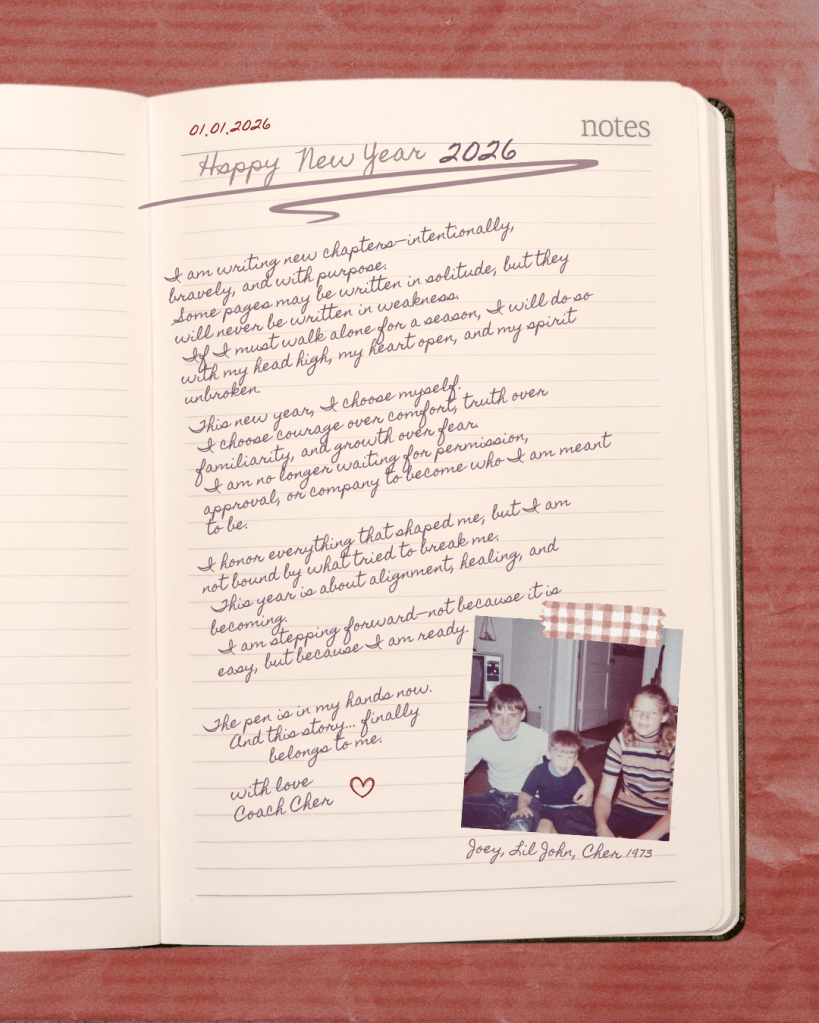 01.01.2026
notes
Happy New Year 2026
I am writing new chapters—intentionally,
bravely, and with purpose.
Some pages may be written in solitude, but they
will never be written in weakness.
If I must walk alone for a season, I will do so
with my head high, my heart open, and my spirit
unbroken.
This new year, I choose myself.
I choose courage over comfort, truth over
familiarity, and growth over fear.
I am no longer waiting for permission,
approval, or company to become who I am meant
to be.
I honor everything that shaped me, but I am
not bound by what tried to break me.
This year is about alignment, healing, and
becoming.
I am stepping forward—not because it is
easy, but because I am ready.
The pen is in my hands now.
And this story... finally
belongs to me.
with love
Coach Cher
Joey, Lil John, Cher 1973